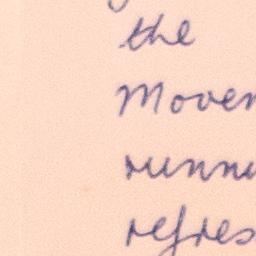 the
Movem
runni
refres